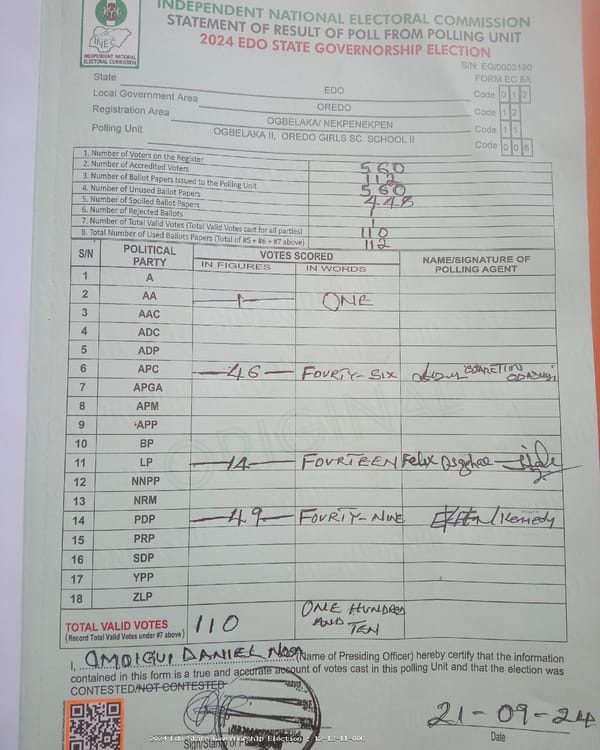 INDEPENDENT NATIONAL ELECTORAL COMMISSION
STATEMENT OF RESULT OF POLL FROM POLLING UNIT
2024 EDO STATE GOVERNORSHIP ELECTION
INEC
INDEPENDENT NATIONAL
ELECTORAL COMMISSION
S/N: EG/0003190
FORM EC 8A
State EDO Code 0 1 2
Local Government Area OREDO Code 1 2
Registration Area OGBELAKA/ NEKPENEKPEN Code 1 1
Polling Unit OGBELAKA II, OREDO GIRLS SC. SCHOOL II Code 0 0 6
1. Number of Voters on the Register 560
2. Number of Accredited Voters 112
3. Number of Ballot Papers Issued to the Polling Unit 560
4. Number of Unused Ballot Papers 448
5. Number of Spoiled Ballot Papers 1
6. Number of Rejected Ballots 1
7. Number of Total Valid Votes (Total Valid Votes cast for all parties) 110
8. Total Number of Used Ballots Papers (Total of #5 + #6 + #7 above) 112
S/N POLITICAL PARTY VOTES SCORED NAME/SIGNATURE OF POLLING AGENT
IN FIGURES IN WORDS
1 A
2 AA 1 ONE
3 AAC
4 ADC
5 ADP
6 APC 46 FOURTY-SIX
7 APGA
8 APM
9 APP
10 BP
11 LP 14 FOURTEEN Felix
12 NNPP
13 NRM
14 PDP 49 FOURTY-NINE Kennedy
15 PRP
16 SDP
17 YPP
18 ZLP
TOTAL VALID VOTES 110 ONE HUNDRED AND TEN
(Record Total Valid Votes under #7 above)
I, OMOIGUI DANIEL NOSA (Name of Presiding Officer) hereby certify that the information
contained in this form is a true and accurate account of votes cast in this polling Unit and that the election was
CONTESTED/NOT CONTESTED
21-09-24
Sign/Stamp of P
Date
2024 Edo State Governorship Election
ORIGINAL